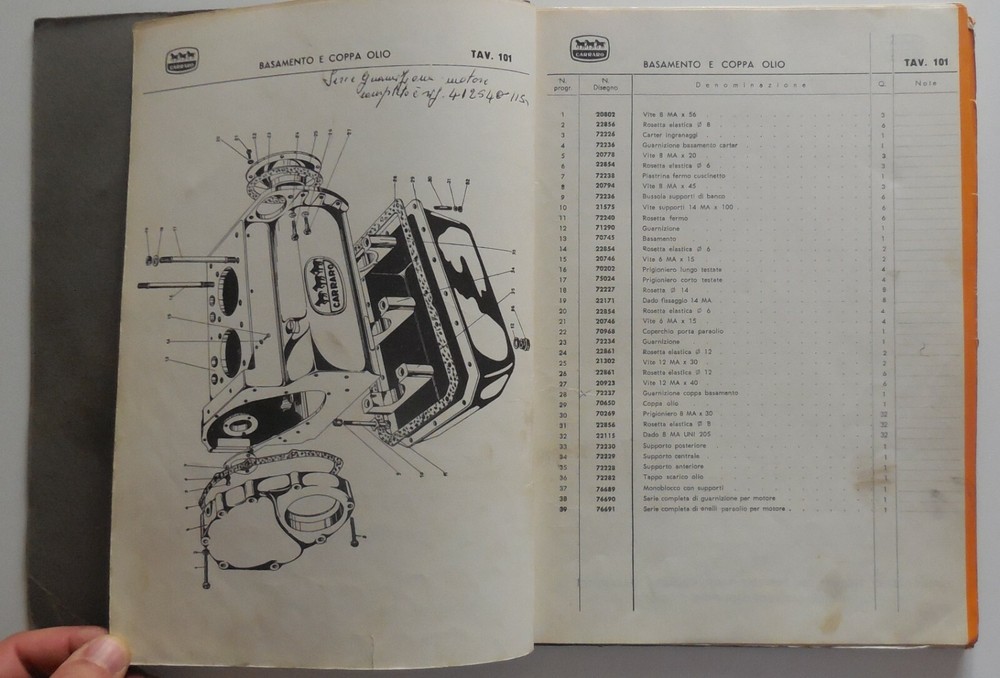 CARRARO
BASAMENTO E COPPA OLIO
TAV. 101
Serie guarnizioni motore
completo è rif. 412540
CARRARO
CARRARO
BASAMENTO E COPPA OLIO
TAV. 101
N. progr. N. Disegno Denominazione Q. Note
1 20802 Vite 8 MA x 56 2
2 22856 Rosetta elastica Ø 8 6
3 72226 Carter ingranaggi 1
4 72236 Guarnizione basamento carter 1
5 20778 Vite 8 MA x 20 3
6 22854 Rosetta elastica Ø 6 3
7 72238 Piastrina fermo cuscinetto 1
8 20794 Vite 8 MA x 45 2
9 72236 Bussola supporti di banco 6
10 21575 Vite supporti 14 MA x 100 6
11 72240 Rosetta fermo 6
12 71290 Guarnizione 1
13 70745 Basamento 1
14 22854 Rosetta elastica Ø 6 2
15 20746 Vite 6 MA x 15 2
16 70202 Prigioniero lungo testate 4
17 75024 Prigioniero corto testate 4
18 72227 Rosetta Ø 14 8
19 22171 Dado fissaggio 14 MA 8
20 22854 Rosetta elastica Ø 6 4
21 20746 Vite 6 MA x 15 4
22 70968 Coperchio porta paraolio 1
23 72234 Guarnizione 1
24 22861 Rosetta elastica Ø 12 2
25 21302 Vite 12 MA x 30 2
26 22861 Rosetta elastica Ø 12 6
27 20923 Vite 12 MA x 40 6
28 72237 Guarnizione coppa basamento 1
29 70650 Coppa olio 1
30 70369 Prigioniero 8 MA x 30 32
31 22856 Rosetta elastica Ø 8 32
32 22115 Dado 8 MA UNI 205 32
33 72230 Supporto posteriore 1
34 72229 Supporto centrale 1
35 72228 Supporto anteriore 1
36 72282 Tappo scarico olio 1
37 76689 Monoblocco con supporti 1
38 76690 Serie completa di guarnizione per motore 1
39 76691 Serie completa di anelli paraolio per motore 1